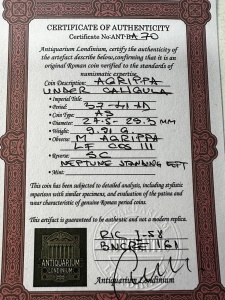 CERTIFICATE OF AUTHENTICITY
Certificate No: ANT-BA 70
Antiquarium Londinium, certify the authenticity of
the artefact describe below, confirming that it is an
original Roman coin verified to the standards of
numismatic expertise.
Coin Description: AGRIPPA
UNDER CALIGULA
• Imperial Title:
• Period: 37-41 AD
• Coin Type: AS
• Diameter: 27.5 - 28.5 mm
• Weight: 9.91 G
• Obverse: M AGRIPPA
LF COS III
• Reverse: SC
NEPTUNE STANDING LEFT
• Mint:
This coin has been subjected to detailed analysis, including stylistic
comparison with similar specimens, and evaluation of the patina and
wear characteristic of genuine Roman period coins.
This artifact is guaranteed to be authentic and not a modern replica.
RIC I-58
BMCRE 161
ANTIQUARIUM
LONDINIUM
Antiquarium Londinium